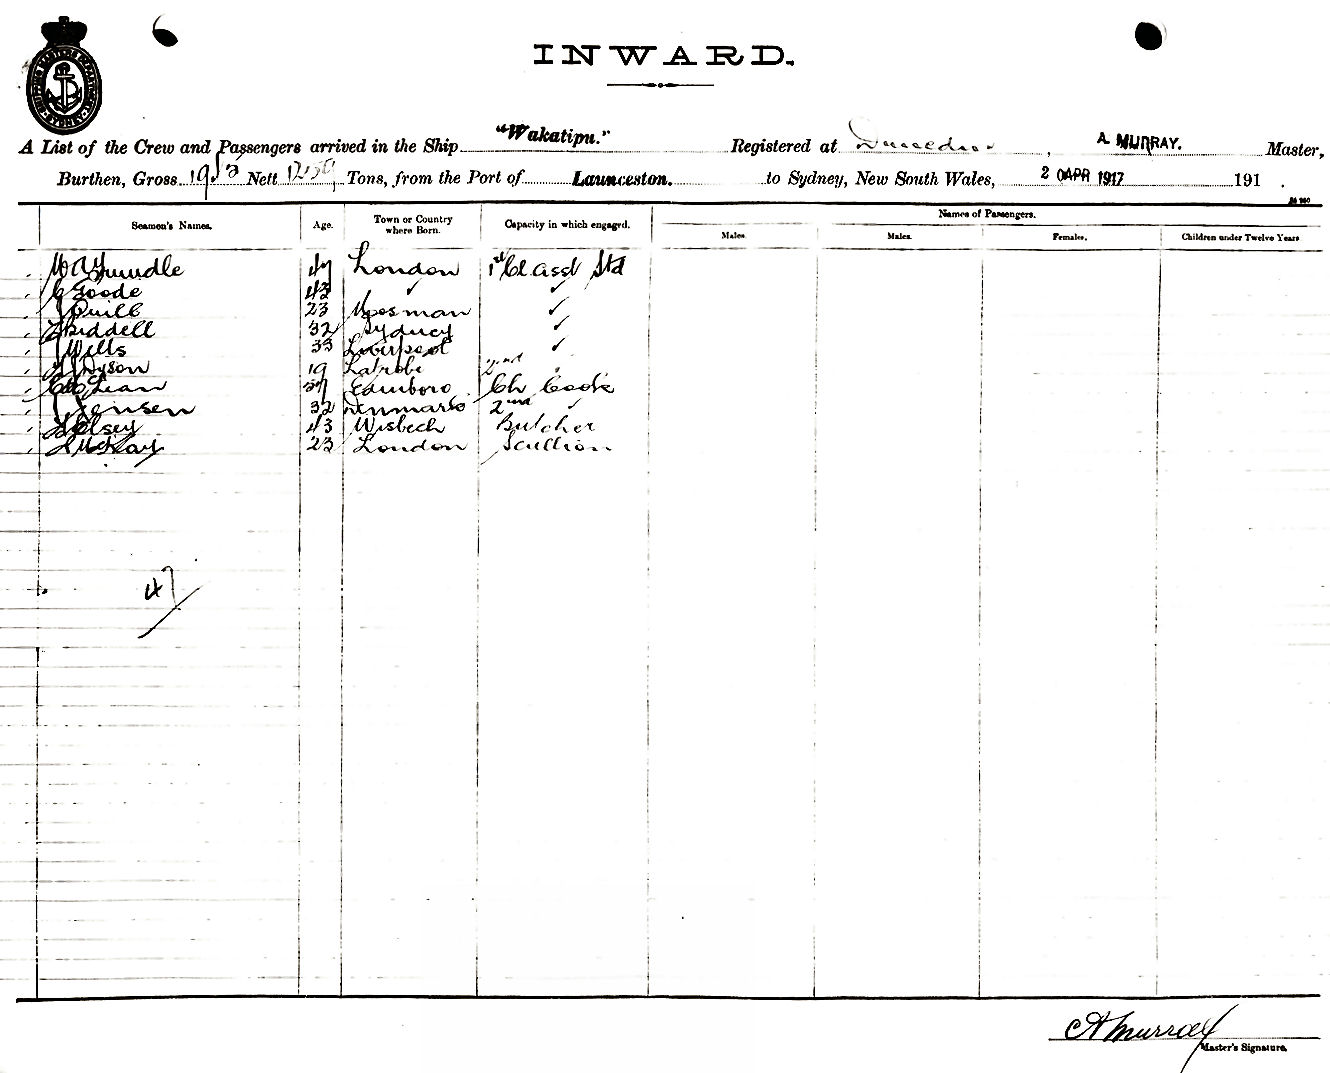 INWARD.
A List of the Crew and Passengers arrived in the Ship "Wakatipu." Registered at Dunedin, A. MURRAY. Master,
Burthen, Gross 1953 Nett 1258, Tons, from the Port of Launceston. to Sydney, New South Wales, 20 APR 1917 191 .
Names of Passengers.
Seamen's Names. Age. Town or Country where Born. Capacity in which engaged. Males. Males. Females. Children under Twelve Years
47 London 1st Class Std
C Goode 43 ✓ ✓
J Quill 23 Mosman ✓
Biddell 32 Sydney ✓
J Wills 33 Liverpool ✓
Dyson 19 Latrobe 2nd
McLean Edinboro Ch Cook
J Jensen 32 Denmark 2nd ✓
Kelsey 43 Wisbech Butcher
McKay 23 London Scullion
47
A Murray
Master's Signature.